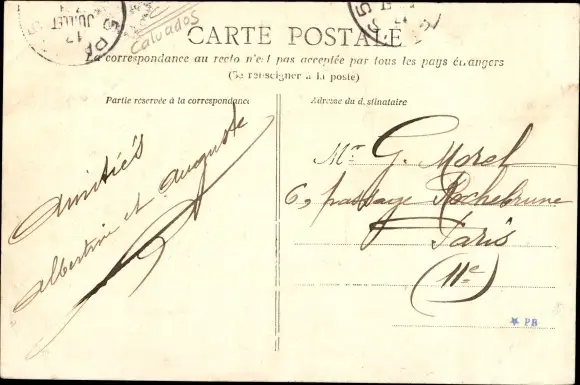 17
JUILLET
Calvados
CARTE POSTALE
La correspondance au recto n'est pas acceptée par tous les pays étrangers
(Se renseigner à la poste)
Partie réservée à la correspondance
Amitiés
Albertine et Auguste
Adresse du destinataire
Mr G. Morel
6, passage Rochebrune
Paris
(11e)
PB